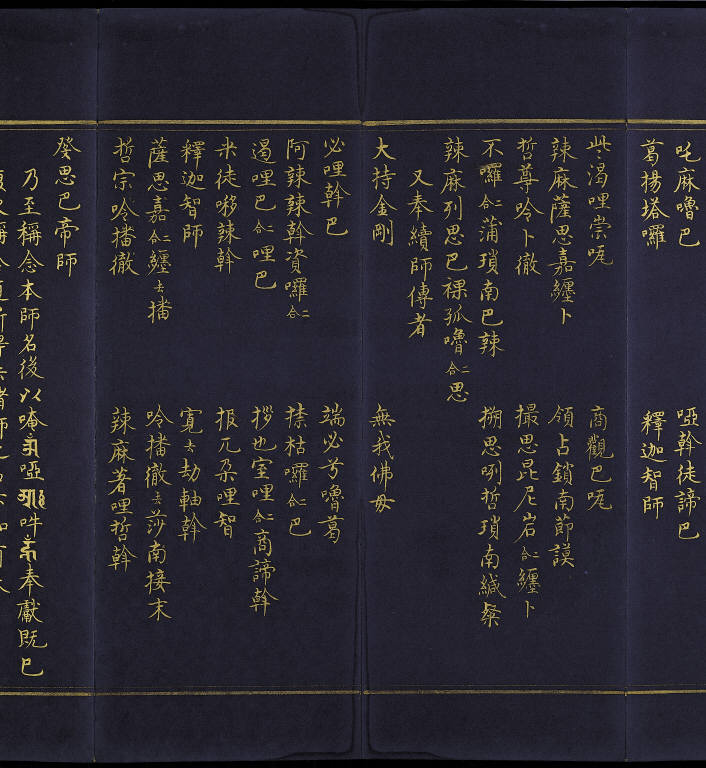 吃麻嚕巴　啞斡徒諦巴
葛揚塔囉　釋迦智師
渴哩崇㖇　商觀巴㖇
辣麻薩思嘉纏卜　領占鎖南節謨
哲尊唥卜徹　撮思昆尼岩合二纏卜
不囉合二蒲瑣南巴辣　搠思咧哲瑣南緘粲
辣麻列思巴裸孤嚕合二思
又奉續師傳者
大持金剛　無我佛母
必哩斡巴　端必兮嚕葛
阿辣辣斡資囉合二　捺枯囉合二巴
遏哩巴合二哩巴　拶也室哩合二商諦斡
米徒哆辣斡　报兀朶哩智
釋迦智師　寬去劫軸斡
薩思嘉合二纏去播　唥播徹去莎南接末
哲宗唥播徹　辣麻著哩哲斡
癸思巴帝師
乃至稱念本師名後以唵ॐ啞吽奉獻既已